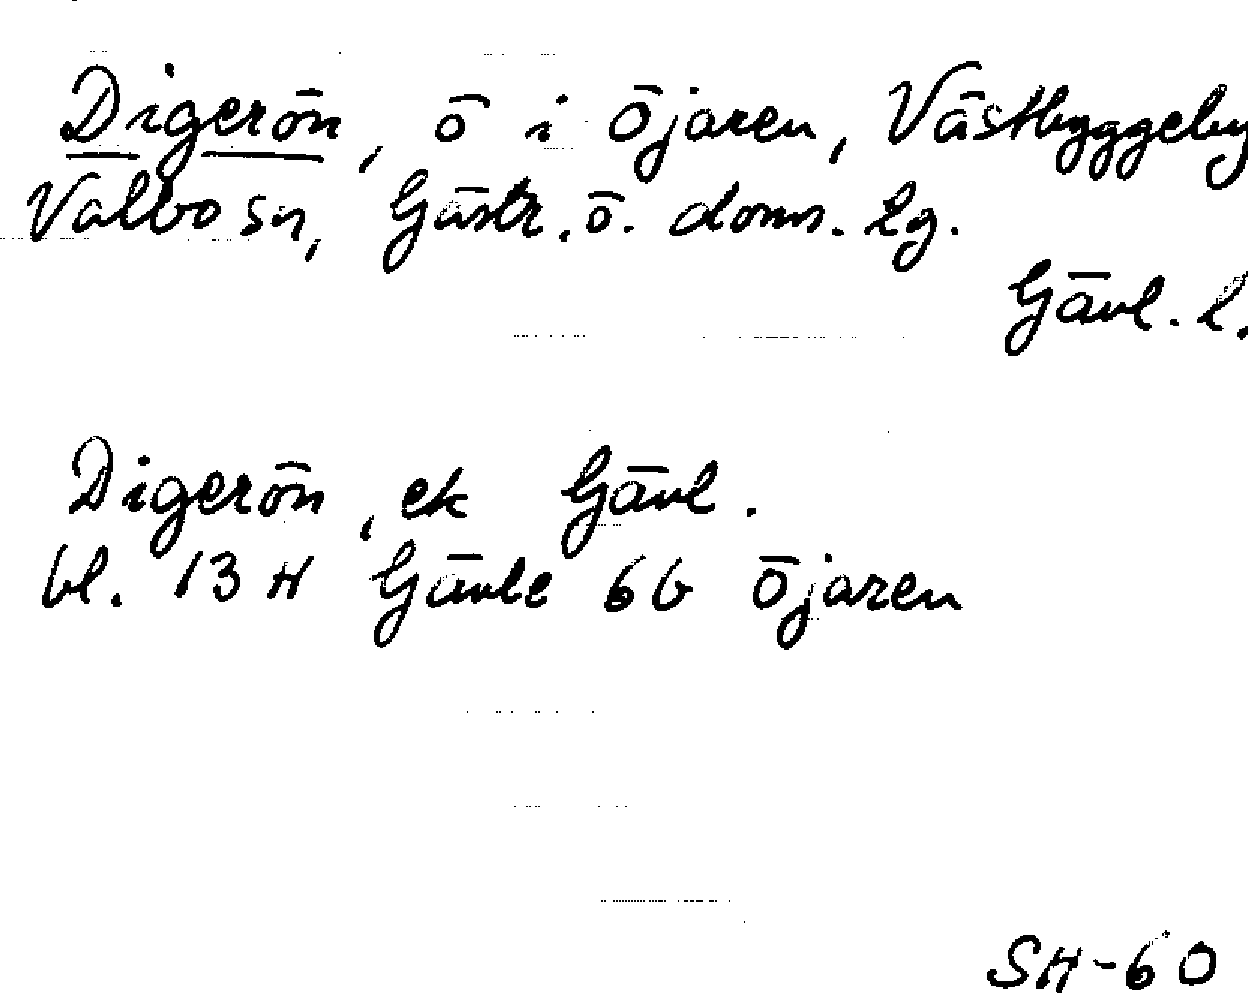 Digerön, ö i Öjaren, Västbyggeby
Valbo sn, Gästr. ö. doms. lg.
Gävl. l.
Digerön, ek Gävl.
bl. 13 H Gävle 6b Öjaren
SH-60